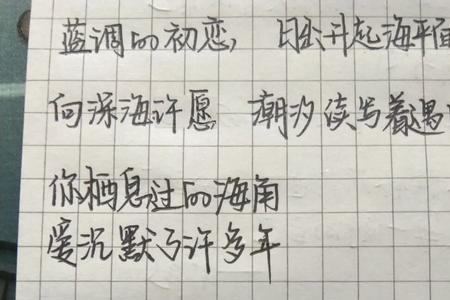 蓝调的初恋, 日出升起海平面
向深海许愿 潮汐读写着遇
你栖息过的海角
爱沉默了许多年